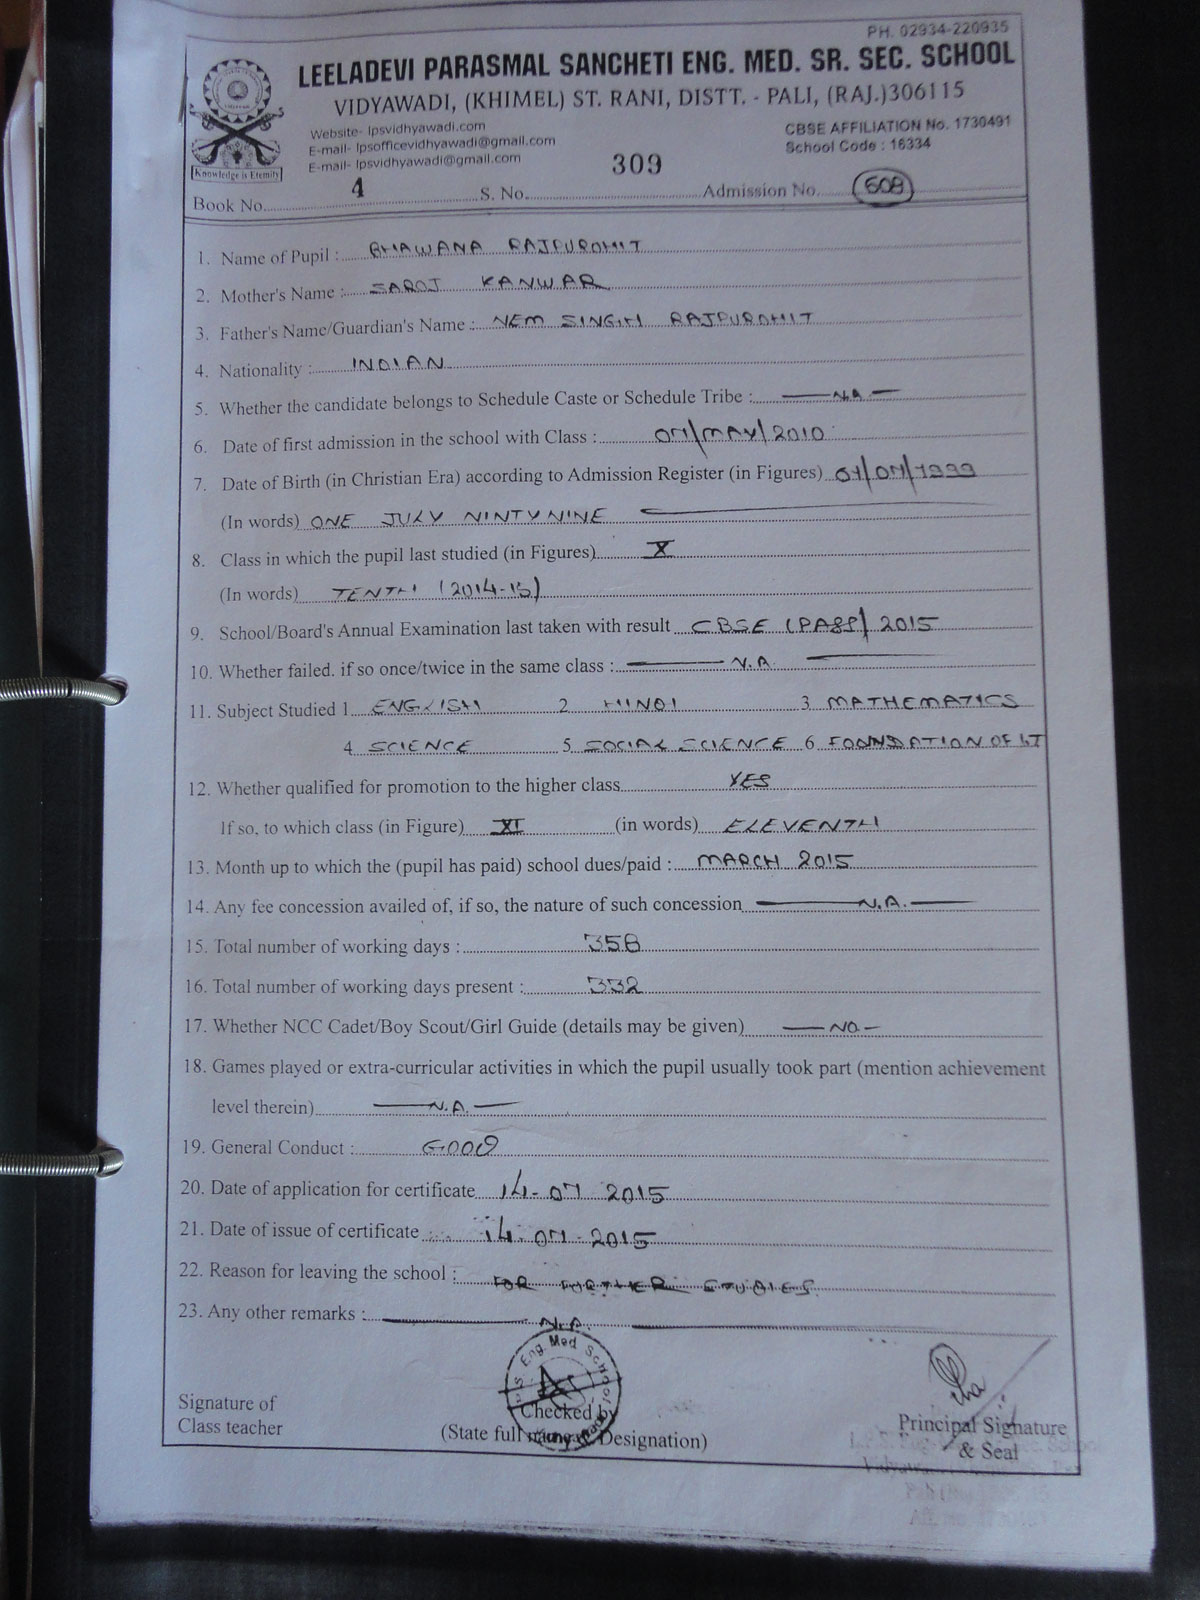 PH. 02934-220935
LEELADEVI PARASMAL SANCHETI ENG. MED. SR. SEC. SCHOOL
VIDYAWADI, (KHIMEL) ST. RANI, DISTT. - PALI, (RAJ.)306115
Website- lpsvidhyawadi.com
CBSE AFFILIATION No. 1730491
E-mail- lpsofficevidhyawadi@gmail.com
School Code : 16334
E-mail- lpsvidhyawadi@gmail.com
Knowledge is Eternity
Book No. 4 S. No. 309 Admission No. 608
1. Name of Pupil : BHAWANA RAJPUROHIT
2. Mother's Name : SAROJ KANWAR
3. Father's Name/Guardian's Name : NEM SINGH RAJPUROHIT
4. Nationality : INDIAN
5. Whether the candidate belongs to Schedule Caste or Schedule Tribe : N.A.
6. Date of first admission in the school with Class : 07/MAY/2010
7. Date of Birth (in Christian Era) according to Admission Register (in Figures) 01/07/1999
(In words) ONE JULY NINTYNINE
8. Class in which the pupil last studied (in Figures) X
(In words) TENTH (2014-15)
9. School/Board's Annual Examination last taken with result CBSE (PASS) 2015
10. Whether failed. if so once/twice in the same class : N.A.
11. Subject Studied 1 ENGLISH 2 HINDI 3 MATHEMATICS
4 SCIENCE 5 SOCIAL SCIENCE 6 FOUNDATION OF IT
12. Whether qualified for promotion to the higher class YES
If so, to which class (in Figure) XI (in words) ELEVENTH
13. Month up to which the (pupil has paid) school dues/paid : MARCH 2015
14. Any fee concession availed of, if so, the nature of such concession N.A.
15. Total number of working days : 358
16. Total number of working days present : 332
17. Whether NCC Cadet/Boy Scout/Girl Guide (details may be given) NO
18. Games played or extra-curricular activities in which the pupil usually took part (mention achievement
level therein) N.A.
19. General Conduct : GOOD
20. Date of application for certificate 14-07 2015
21. Date of issue of certificate 14-07-2015
22. Reason for leaving the school : FOR FURTHER STUDIES
23. Any other remarks : N.A.
Eng. Med School
Signature of
Class teacher
Checked by
(State full name & Designation)
Principal Signature
& Seal